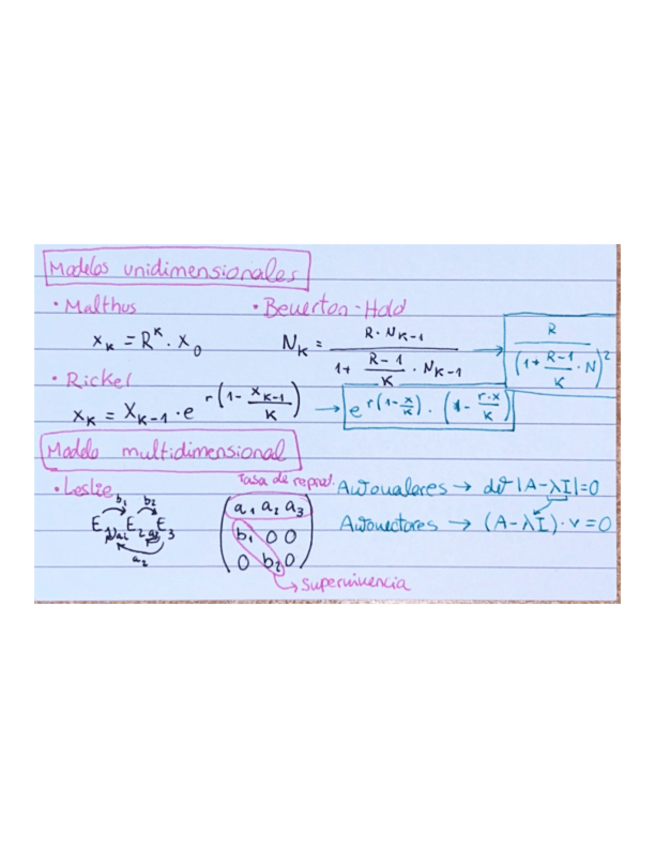 Modelos unidimensionales
• Malthus
x_K = R^K · x_0
• Beverton-Hold
N_K = \frac{R · N_{K-1}}{1 + \frac{R-1}{K} · N_{K-1}} → \frac{R}{(1 + \frac{R-1}{K} · N)^2}
• Rickel
x_K = X_{K-1} · e^{r(1 - \frac{x_{K-1}}{K})} → e^{r(1 - \frac{x}{K})} · (1 - \frac{r·x}{K})
Modelo multidimensional
• Leslie
b_1 b_2
E_1 E_2 E_3
a_2
Tasa de reprod.
a_1 a_2 a_3
b_1 0 0
0 b_2 0
→ supervivencia
Autovalores → det |A-λI|=0
Autovectores → (A-λI)·v=0